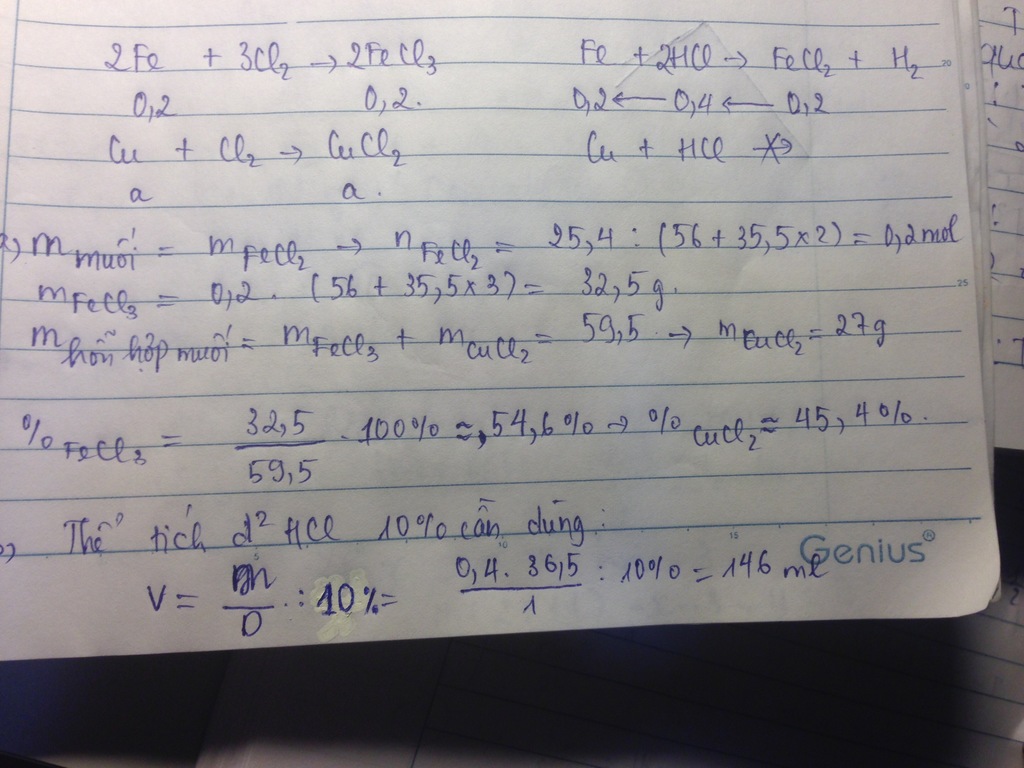 2Fe + 3Cl₂ → 2FeCl₃ Fe + 2HCl → FeCl₂ + H₂
0,2 0,2. 0,2 ← 0,4 ← 0,2
Cu + Cl₂ → CuCl₂ Cu + HCl ↛
a a.
a, m muối = m FeCl₂ → n FeCl₂ = 25,4 : (56 + 35,5×2) = 0,2 mol
m FeCl₃ = 0,2 . (56 + 35,5×3) = 32,5 g.
m hỗn hợp muối = m FeCl₃ + m CuCl₂ = 59,5 → m CuCl₂ = 27g
% FeCl₃ = 32,5/59,5 . 100% ≈ 54,6% → % CuCl₂ ≈ 45,4%.
Thể tích d² HCl 10% cần dùng:
V = m/D : 10% = 0,4 . 36,5/1 : 10% = 146 ml
Genius®